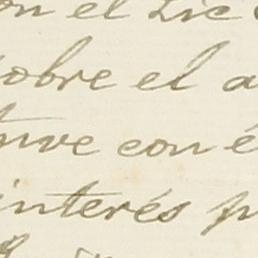 on el Lic
sobre el a
tuve con é
interés p